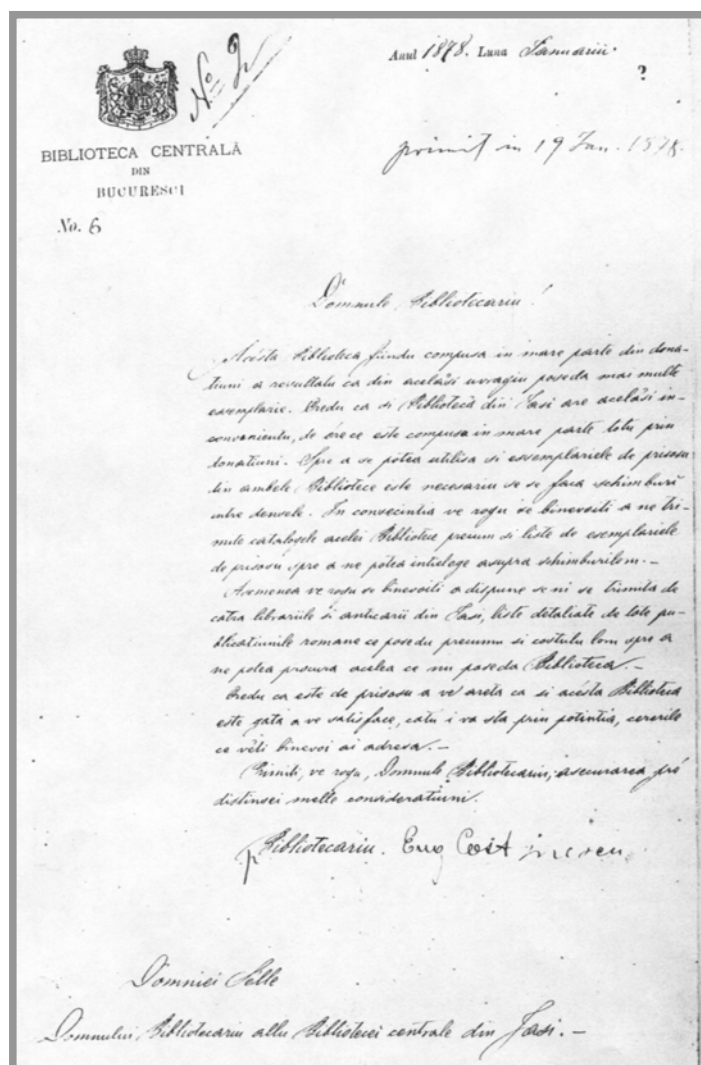 No 2
Anul 1878. Luna Ianuariu.
?
primit in 19 Ian. 1878.
BIBLIOTECA CENTRALĂ
DIN
BUCURESCI
No. 6
Domnule Bibliotecariu!
Acésta Biblioteca fiindu compusa in mare parte din dona-
tiuni a resultatu ca din acelăsi uvragiu poseda mai multe
esemplarie. Credu ca si Biblioteca din Iasi are acelăsi in-
convenientu, de óre ce este compusa in mare parte totu prin
donatiuni. Spre a se potea utilisa si essemplariele de prisosu
din ambele Bibliotece este necesariu se se faca schimbură
intre densele. In convecintia ve rogu se binevoiti a ne tri-
mite catalogele acelei Biblioteca precum si liste de esemplariele
de prisosu spre a ne potea intielege asupra schimburilom. -
Asemenea ve rogu se binevoiti a dispune se ni se trimita de
catra librariile si anticarii din Iasi, liste detaliate de tote pu-
blicatiunile romane ce posedu precumu si costulu lom spre a
ne potea procura acelea ce nu poseda Biblioteca. -
Credu ca este de prisosu a ve areta ca si acésta Biblioteca
este gata a ve satisface, catu i va sta prin potintia, cererile
ce veti binevoi ai adresa. -
Primiti, ve rogu, Domnule Bibliotecariu, asecurarea pré
distinsei melle consideratiuni.
p Bibliotecariu. Eug
Domniei Selle
Domnului, Bibliotecariu allu Bibliotecei centrale din Jasi. -